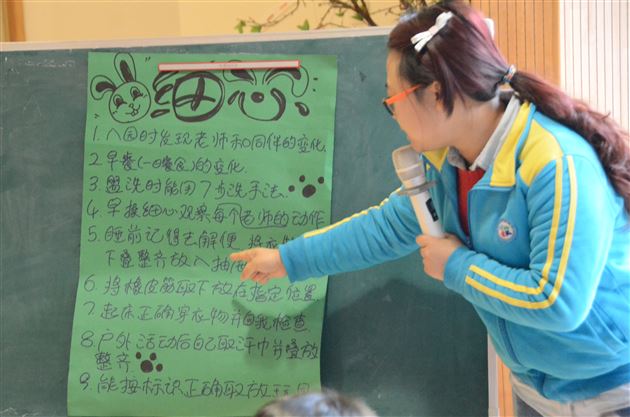 细心
1. 入园时发现老师和同伴的变化.
2. 早餐(一日餐食)的变化.
3. 盥洗时能用7步洗手法.
4. 早接细心观察每个老师的动作
5. 睡前记得去解便,将衣物
下叠整齐放入抽
6. 将橡皮筋取下放在指定位置
7. 起床正确穿衣物并自我检查.
8. 户外活动后自己取汗巾并叠放
整齐.
9. 能按标识正确取放玩具